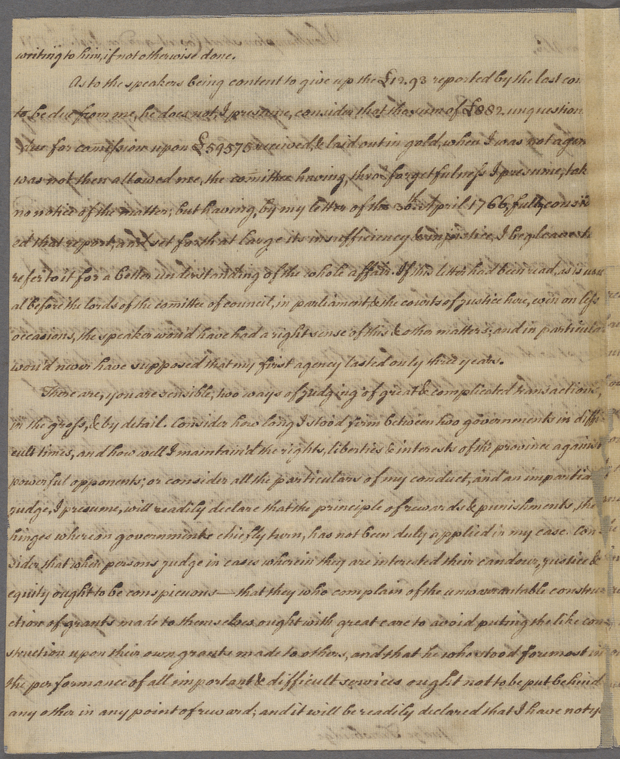 writing to him, if not otherwise done.
As to the speakers being content to give up the £12.93 reported by the last com
to be due from me, he does not, I presume, consider that the sum of £882. unquestion
due for comission upon £59575 received, & laid out in gold, when I was not agen
was not then allowed me, the comittee having, thro' forgetfulness I presume, tak
no notice of the matter; but having, by my letter of the April 1766, fully consid
ed that report, and set forth at large its insufficiency & injustice, I beg leave to
refer to it for a better understanding of the whole affair. If this letter had been read, as is usu
al before the lords of the comittee of council, in parliament, & the courts of justice here, even on less
occasions, the speaker wou'd have had a right sense of this & other matters; and in particular
wou'd never have supposed that my first agency lasted only three years.
There are, you are sensible, two ways of judging of great & complicated transactions,
in the gross, & by detail. Consider how long I stood firm between two governments in diffi
cult times, and how well I maintain'd the rights, liberties & interests of the province against
powerful opponents; or consider all the particulars of my conduct, and an impartial
judge, I presume, will readily declare that the principle of rewards & punishments, the
hinges wherein governments chiefly turn, has not been duly applied in my case. Con
sider that when persons judge in cases wherein they are interested their candour, justice &
equity ought to be conspicuous — that they who complain of the unwarrantable constru
ction of grants made to themselves, ought with great care to avoid puting the like con
struction upon their own grants made to others, and that he who stood foremost in
the performance of all important & difficult services ought not to be put behind
any other in any point of reward; and it will be readily declared that I have not